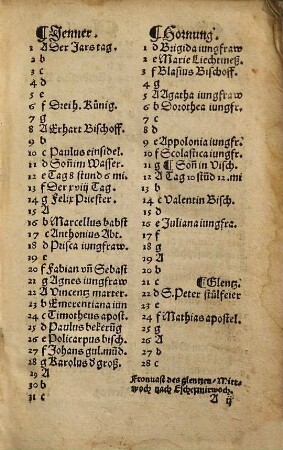 Jenner.
1 A Der Jars tag.
2 b
3 c
4 d
5 e
6 f Dreih. Künig.
7 g
8 A Erhart Bischoff.
9 b
10 c Paulus einsidel.
11 d Soñ im Wasser.
12 e Tag 8 stund 6 mi.
13 f Der xviij Tag.
14 g Felix Priester.
15 A
16 b Marcellus babst
17 c Anthonius Abt.
18 d Prisca iungfraw.
19 e
20 f Fabian vñ Sebast
21 g Agnes iungfraw
22 A Vincentz marter.
23 b Emrentiana iun
24 c Timotheus apost.
25 d Paulus bekerũg
26 e Policarpus bisch.
27 f Johans gul. mũd.
28 g Karolus d groß.
29 A
30 b
31 c
Hornung.
1 d Brigida iungfraw
2 e Marie Liechtmeß.
3 f Blasius Bischoff.
4 g
5 A Agatha iungfraw
6 b Dorothea iungfr.
7 c
8 d
9 e Appolonia iungfr.
10 f Scolastica iungfr.
11 g Soñ in Visch.
12 A Tag 10 stũd 12. mi
13 b
14 c Valentin Bisch.
15 d
16 e Juliana iungfra.
17 f
18 g
19 A
20 b
21 c Glentz.
22 d S. Peter stũlfeier
23 e
24 f Mathias apostel.
25 g
26 A
27 b
28 c
Fronuast des glentzen Mitt-
woch nach Eschermitwoch.
A ij